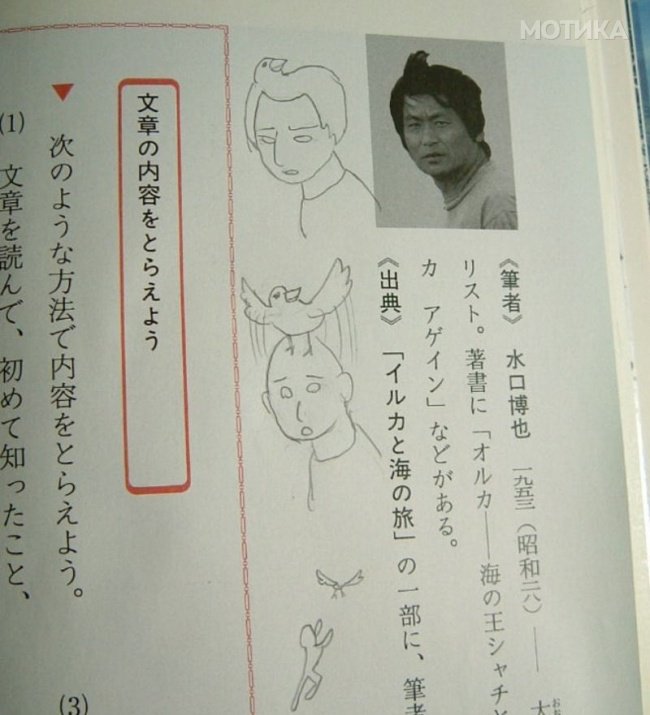 МОТИКА
《筆者》 水口博也 一九五三（昭和二八）—— 大
リスト。著書に「オルカ——海の王シャチと
カ アゲイン」などがある。
《出典》 「イルカと海の旅」の一部に、筆者
文章の内容をとらえよう
▼ 次のような方法で内容をとらえよう。
(1) 文章を読んで、初めて知ったこと、
(3)